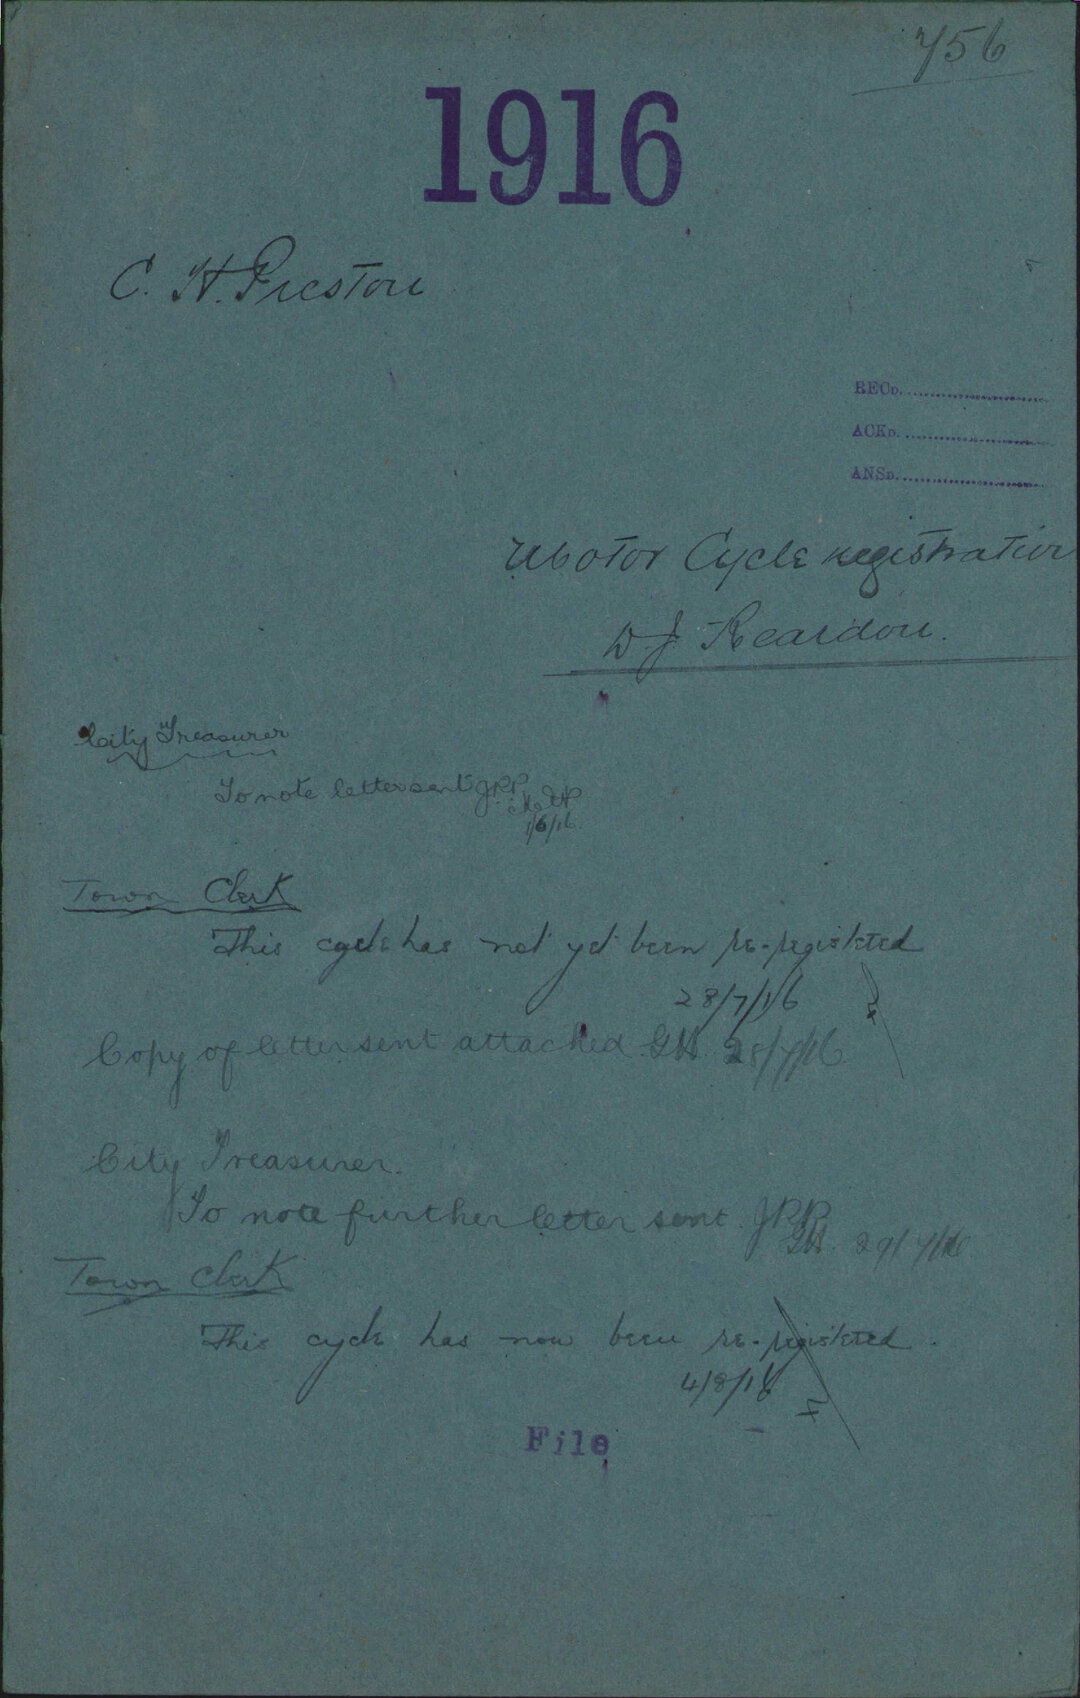 756
1916
C. H. Preston
RECD.
ACKD.
ANSD.
Motor Cycle registration
D. J. Reardon.
City Treasurer
To note letter sent JRP
1/6/16.
Town Clerk
This cycle has not yet been re-registered
28/7/16
Copy of letter sent attached. GH. 28/7/16
City Treasurer.
To note further letter sent. JRP
GH. 29/7/16
Town Clerk
This cycle has now been re-registered.
4/8/16
File